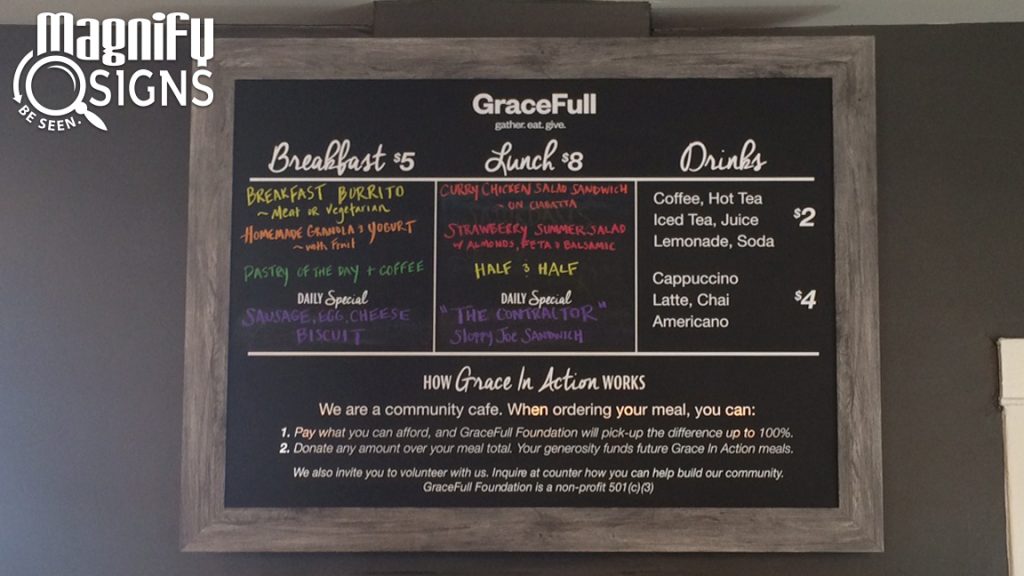 Magnify
SIGNS
BE SEEN.
GraceFull
gather. eat. give.
Breakfast $5
BREAKFAST BURRITO
~ Meat or Vegetarian
HOMEMADE GRANOLA & YOGURT
~ with Fruit
PASTRY OF THE DAY + COFFEE
DAILY Special
SAUSAGE, EGG, CHEESE
BISCUIT
Lunch $8
CURRY CHICKEN SALAD SANDWICH
~ ON CIABATTA
STRAWBERRY SUMMER SALAD
W/ ALMONDS, FETA & BALSAMIC
HALF & HALF
DAILY Special
"THE CONTRACTOR"
SLOPPY JOE SANDWICH
Drinks
Coffee, Hot Tea
Iced Tea, Juice
Lemonade, Soda
$2
Cappuccino
Latte, Chai
Americano
$4
HOW Grace In Action WORKS
We are a community cafe. When ordering your meal, you can:
1. Pay what you can afford, and GraceFull Foundation will pick-up the difference up to 100%.
2. Donate any amount over your meal total. Your generosity funds future Grace In Action meals.
We also invite you to volunteer with us. Inquire at counter how you can help build our community.
GraceFull Foundation is a non-profit 501(c)(3)